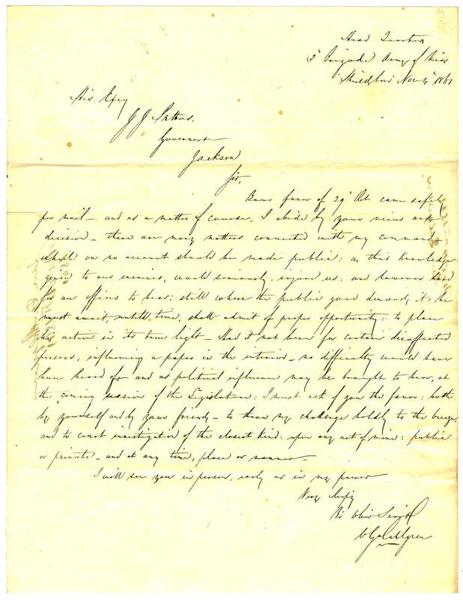 Head Quarters
3 Brigade Army of Miss
Nov 4 1861
His Excy
J J Pettus
Governor
Jackson
Sir.
Your favor of 29 Oct came safely
per mail - and as a matter of course, I abide by your views and
decision - there are many matters connected with my command
which on no account should be made public: as this knowledge
given to our enemies, would seriously injure us; and however hard
for an officer to bear: still where the public good demands it: he
must await, untill, time, shall admit of proper opportunity: to place
his action in its true light - Had it not been for certain disaffected
persons, influencing a paper in the interior - no difficulty would have
been heard of and as political influence may be brought to bear, at
the coming session of the Legislature: I must ask of you the favor: both
by yourself and by your friends - to throw my challenge boldly: to the
and to court investigation of the closest kind: upon any act of mine: public
or private - and at any time, place or manner -
I will see you in person, early as in my power
Very Respy
Yr Obt Servt